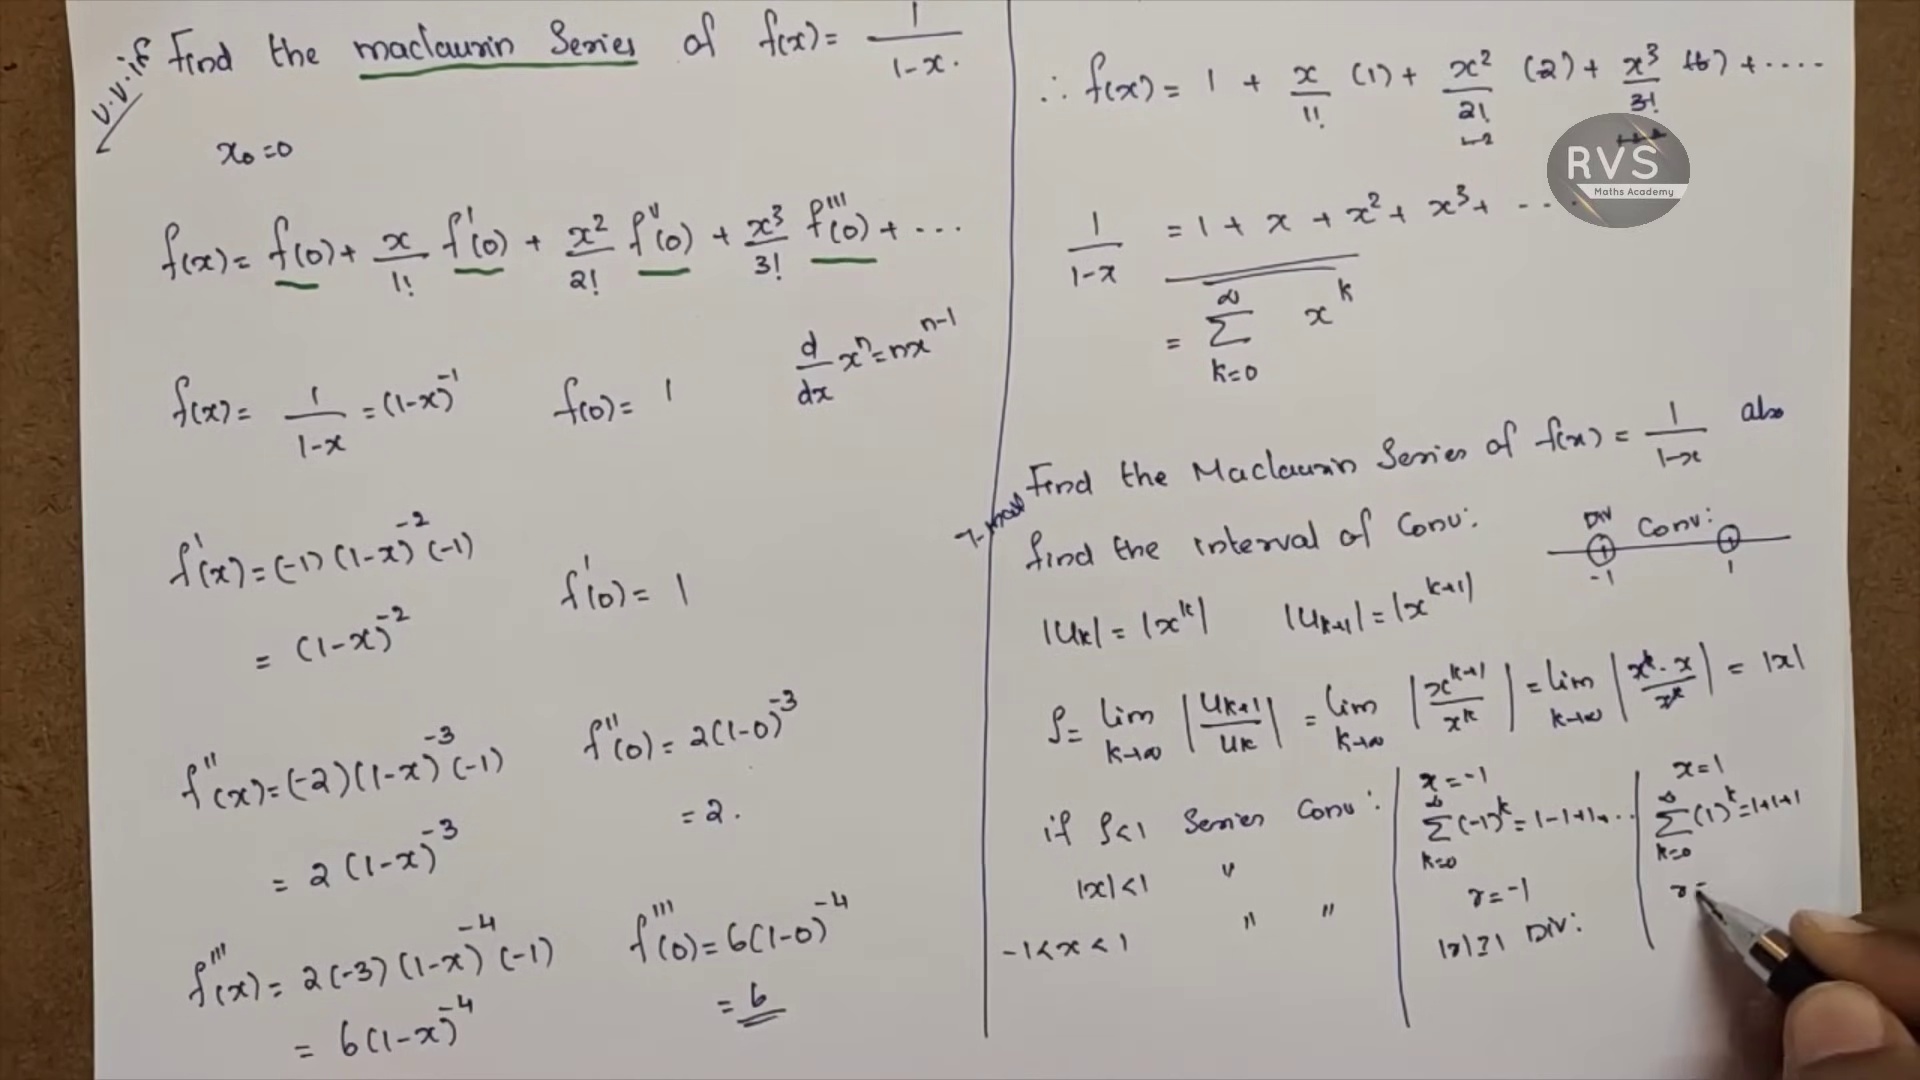 v.v.if Find the maclaurin Series of f(x) = 1/1-x.
x₀=0
f(x) = f(0) + x/1! f'(0) + x²/2! f''(0) + x³/3! f'''(0) + ...
d/dx xⁿ = nxⁿ⁻¹
f(x) = 1/1-x = (1-x)⁻¹ f(0) = 1
f'(x) = (-1)(1-x)⁻²(-1)
= (1-x)⁻² f'(0) = 1
f''(x) = (-2)(1-x)⁻³(-1) f''(0) = 2(1-0)⁻³
= 2(1-x)⁻³ = 2.
f'''(x) = 2(-3)(1-x)⁻⁴(-1) f'''(0) = 6(1-0)⁻⁴
= 6(1-x)⁻⁴ = 6
∴ f(x) = 1 + x/1! (1) + x²/2! (2) + x³/3! (6) + ....
RVS
Maths Academy
1/1-x = 1 + x + x² + x³ + ...
= ∞ Σ k=0 xᵏ
Find the Maclaurin Series of f(x) = 1/1-x also
find the interval of Conv:
Div Conv:
-1 1
|Uₖ| = |xᵏ| |Uₖ₊₁| = |xᵏ⁺¹|
ρ = lim k→∞ |Uₖ₊₁/Uₖ| = lim k→∞ |xᵏ⁺¹/xᵏ| = lim k→∞ |xᵏ·x/xᵏ| = |x|
if ρ<1 Series Conv:
|x|<1 "
-1<x<1 " "
x=-1
∞ Σ k=0 (-1)ᵏ = 1-1+1+...
r=-1
|r|≥1 Div:
x=1
∞ Σ k=0 (1)ᵏ = 1+1+1
r=